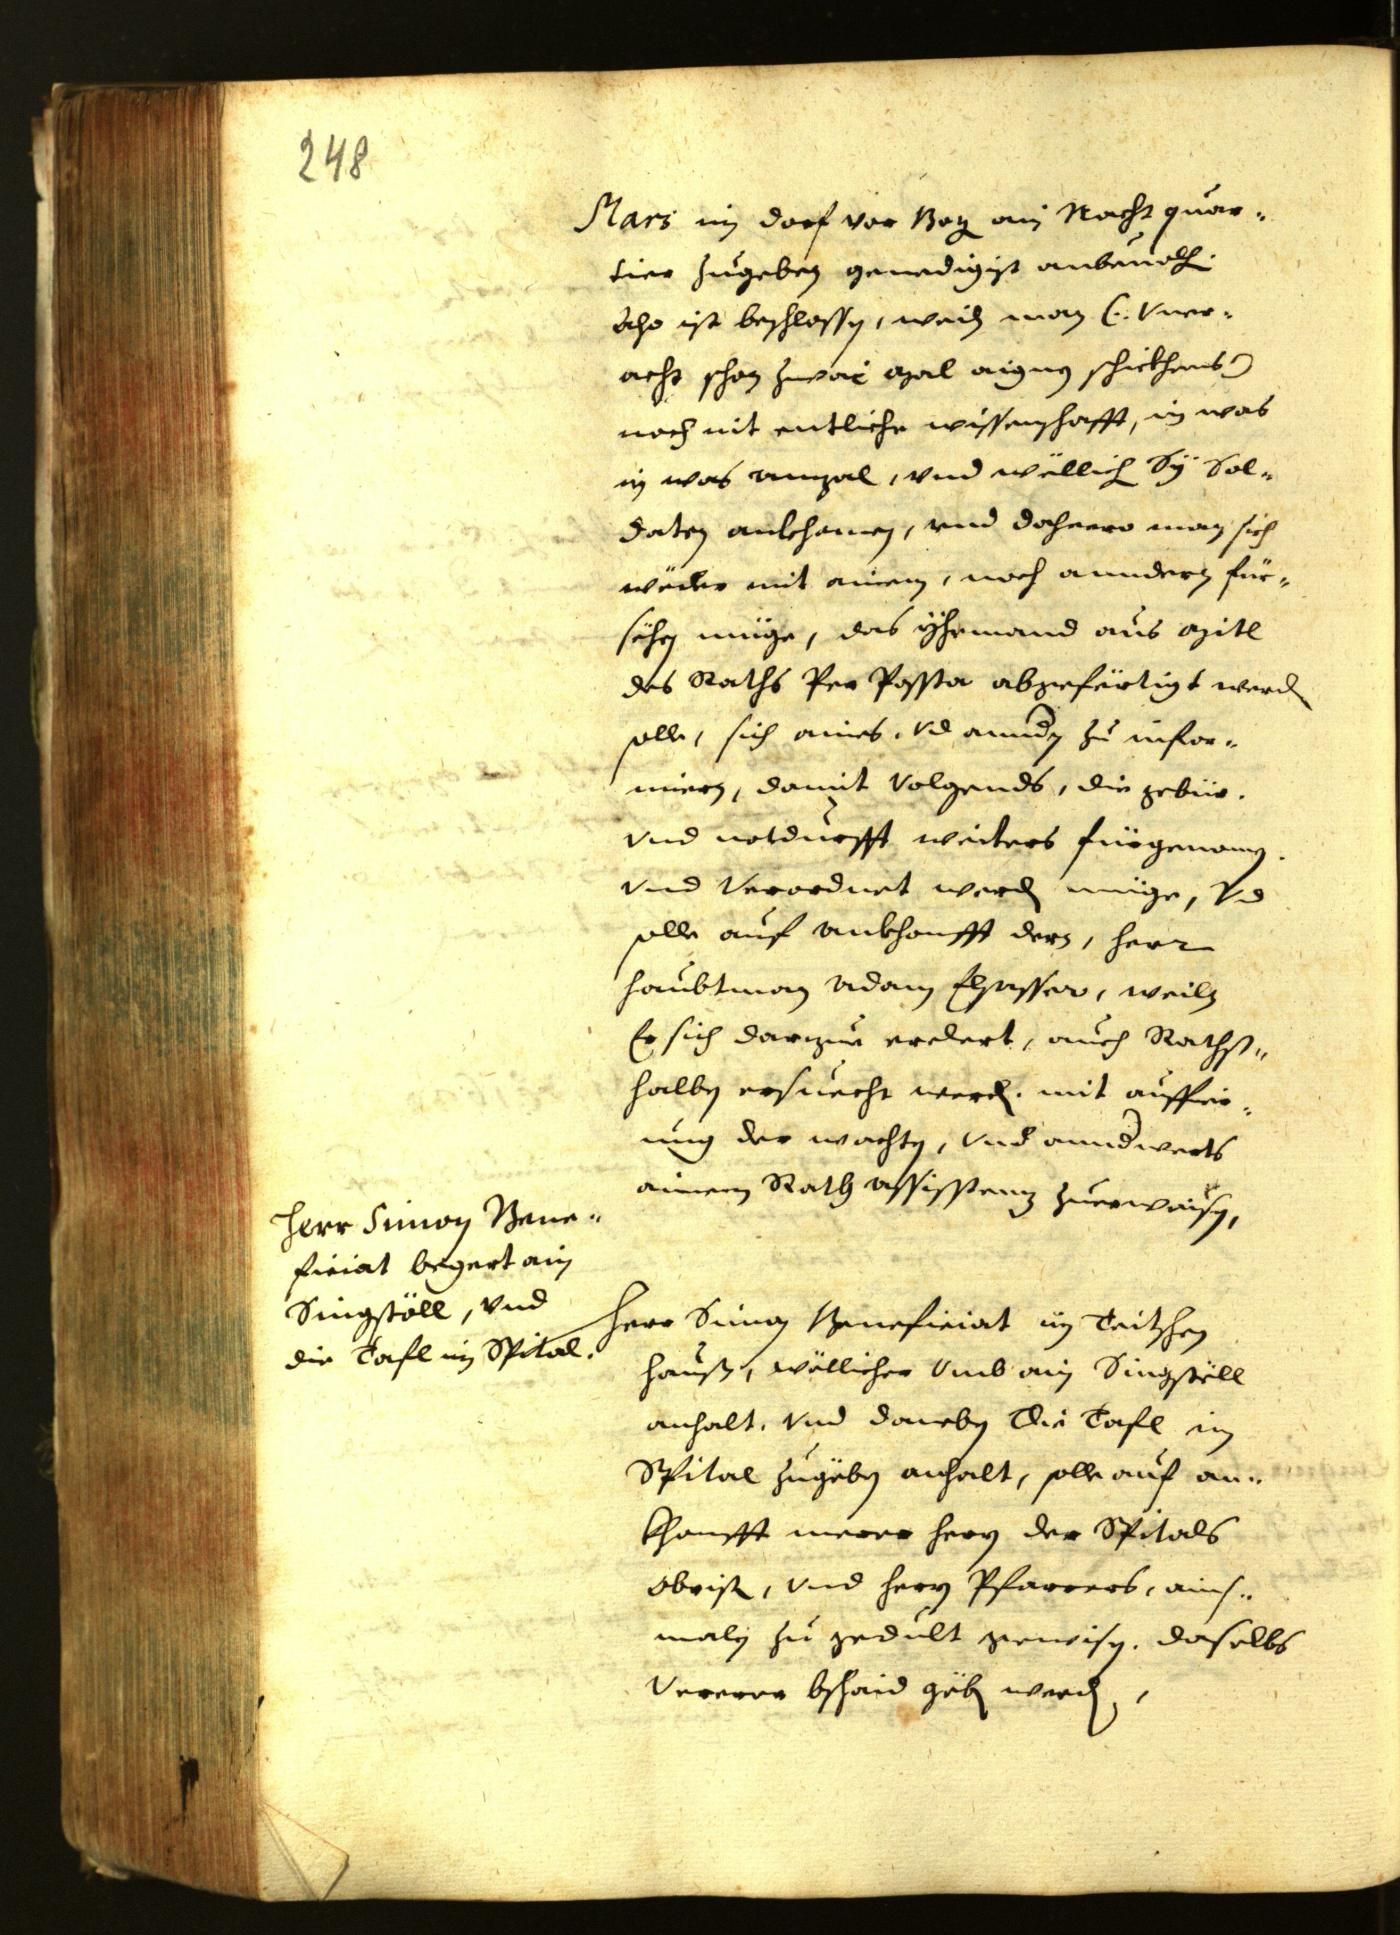 248
Marz im dorf vor Boz ain Nacht quar-
tier zugeben genedigist anbeuolh.
ist beschlossen, weil man (: Vner-
acht schon zwai mal aignes schickhens:)
noch nit entliche wissenschafft, in was
in was anzal, vnd wöllich Sÿ Sol-
daten ankhomen, vnd dahero man sich
weder mit ainem, noch anndern für-
sehen müge, das yhemand aus mitl
des Raths Per Possta abgefürtigt werden
solle, sich aines vnd anndern zu infor-
miern, damit Volgends, die gebür.
Vnd notdurfft weiters fürgenomen.
Vnd Verordnet werden müge, Vnd
solle auf ankhonfft dern, herr
haubtman Adam Elsasser, weiln
Er sich darzue erclert, auch Raths-
halben ersuecht werden. mit auffier-
ung der wachten, Vnd annderwerts
ainem Rath assisstenz zuerweisen,
Herr Simon Bene-
ficiat begert ain
Singstöll, vnd
die Tafl im Spital.
Herr Simon Beneficiat im Teitschen
hauß, wöllicher Vmb ain Singstöll
anhalt. Vnd daneben Die Tafl im
Spital zugeben anhalt, solle auf an-
khonfft merer hern der Spitals
obrist, Vnd hern Pfarrers, ains-
maln zu gedult gewisen. daselbs
Verrer bschaid geben werden,